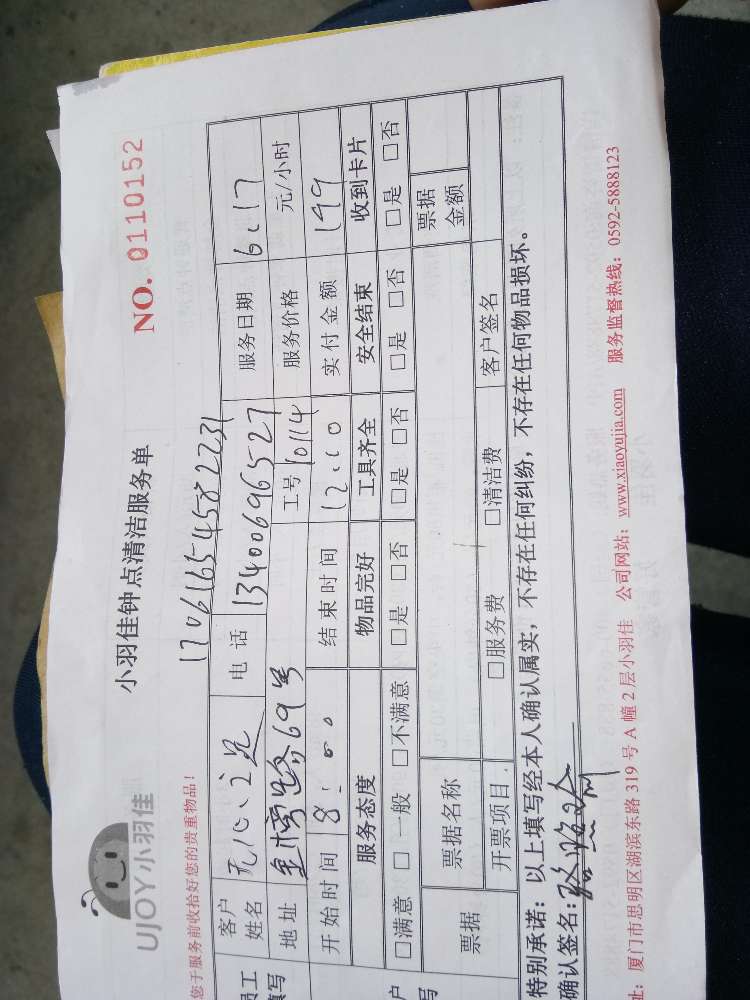 UJOY小羽佳
小羽佳钟点清洁服务单
NO. 0110152
您于服务前收拾好您的贵重物品!
17061654582231
客户姓名 电话 13400696527 服务日期 6.17
地址 金榜路69号 工号 10114 服务价格 元/小时
开始时间 8:00 结束时间 12:00 实付金额 149
服务态度 物品完好 工具齐全 安全结束 收到卡片
□满意 □一般 □不满意 □是 □否 □是 □否 □是 □否 □是 □否
票据 票据名称 票据金额
开票项目 □服务费 □清洁费 客户签名
特别承诺: 以上填写经本人确认属实, 不存在任何纠纷, 不存在任何物品损坏。
确认签名:
址: 厦门市思明区湖滨东路 319 号 A 幢 2 层小羽佳 公司网站: www.xiaoyujia.com 服务监督热线: 0592-5888123